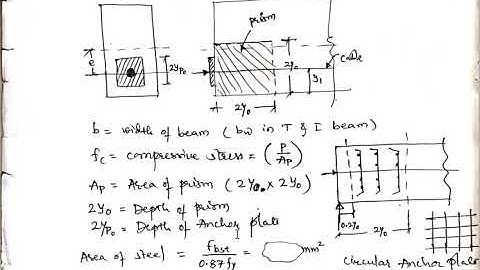 prism
cable
e
2yp₀
2y₀
y₁
2y₀
b = width of beam ( bw in T & I beam)
fc = compressive stress = (P/Ap)
Ap = Area of prism ( 2y₀ x 2y₀)
2y₀ = Depth of prism
2yp₀ = Depth of Anchor plate
Area of steel = fbst/0.87fy = mm²
0.2y₀
2y₀
Circular Anchor plate